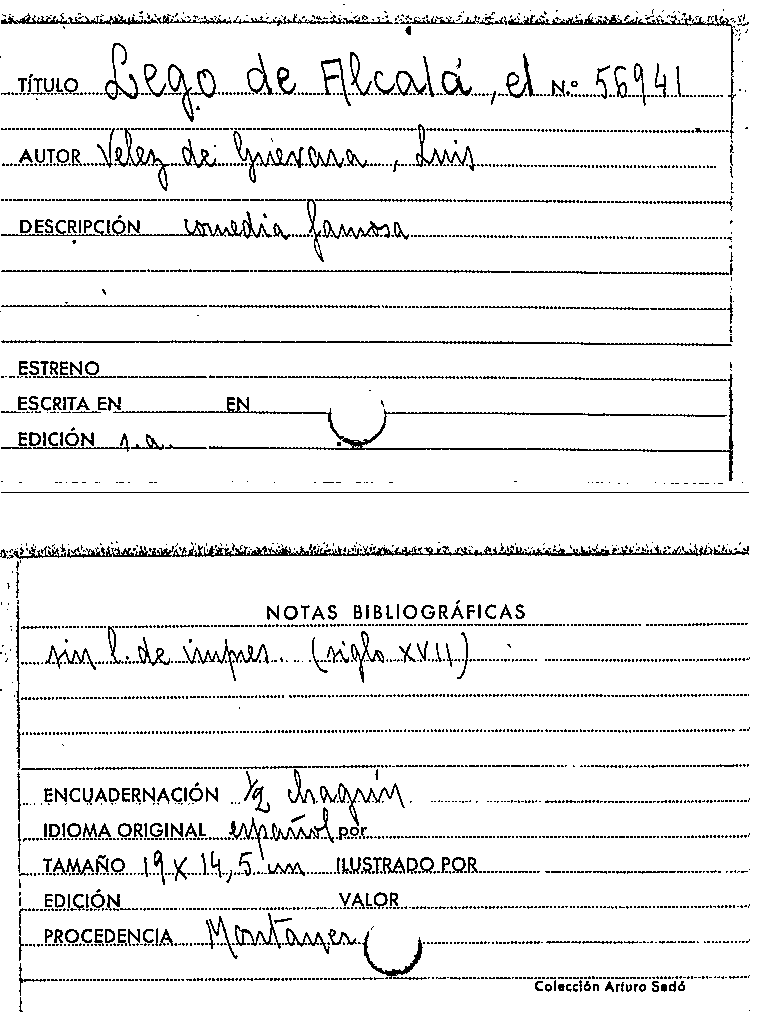 TÍTULO Lego de Alcalá, el N.º 56941
AUTOR Velez de Guevara, Luis
DESCRIPCIÓN comedia famosa
ESTRENO
ESCRITA EN EN
EDICIÓN s.a.
NOTAS BIBLIOGRÁFICAS
sin l. de impres. (siglo XVII)
ENCUADERNACIÓN ½ chagrín
IDIOMA ORIGINAL español por
TAMAÑO 19 x 14,5 cm ILUSTRADO POR
EDICIÓN VALOR
PROCEDENCIA Montaner
Colección Arturo Sedó